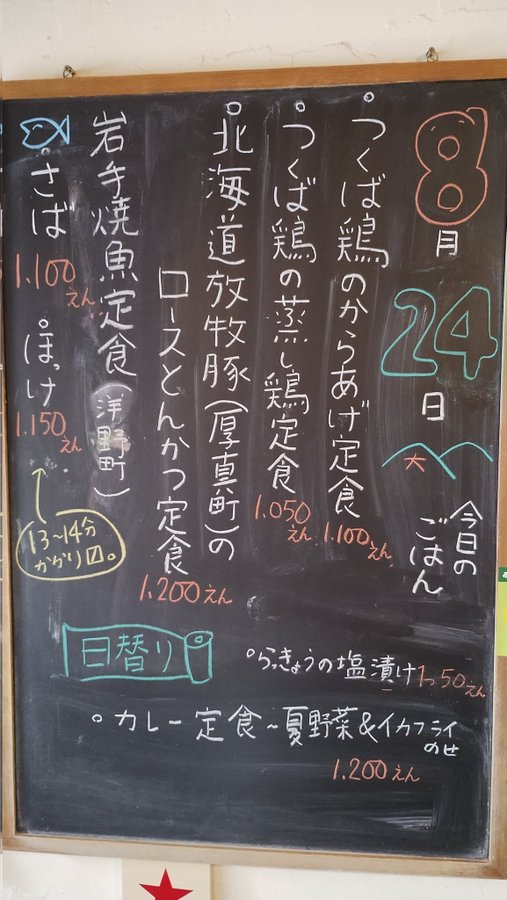 8月
24日
大
今日の
ごはん
つくば鶏のからあげ定食
1.100えん
つくば鶏の蒸し鶏定食
1.050えん
北海道放牧豚(厚真町)の
ロースとんかつ定食
1.200えん
岩手焼魚定食(洋野町)
さば
1.100えん
ほっけ
1.150えん
13~14分
かかり〼。
日替り
らっきょうの塩漬け1つ50えん
カレー定食~夏野菜&イカフライ
のせ
1.200えん